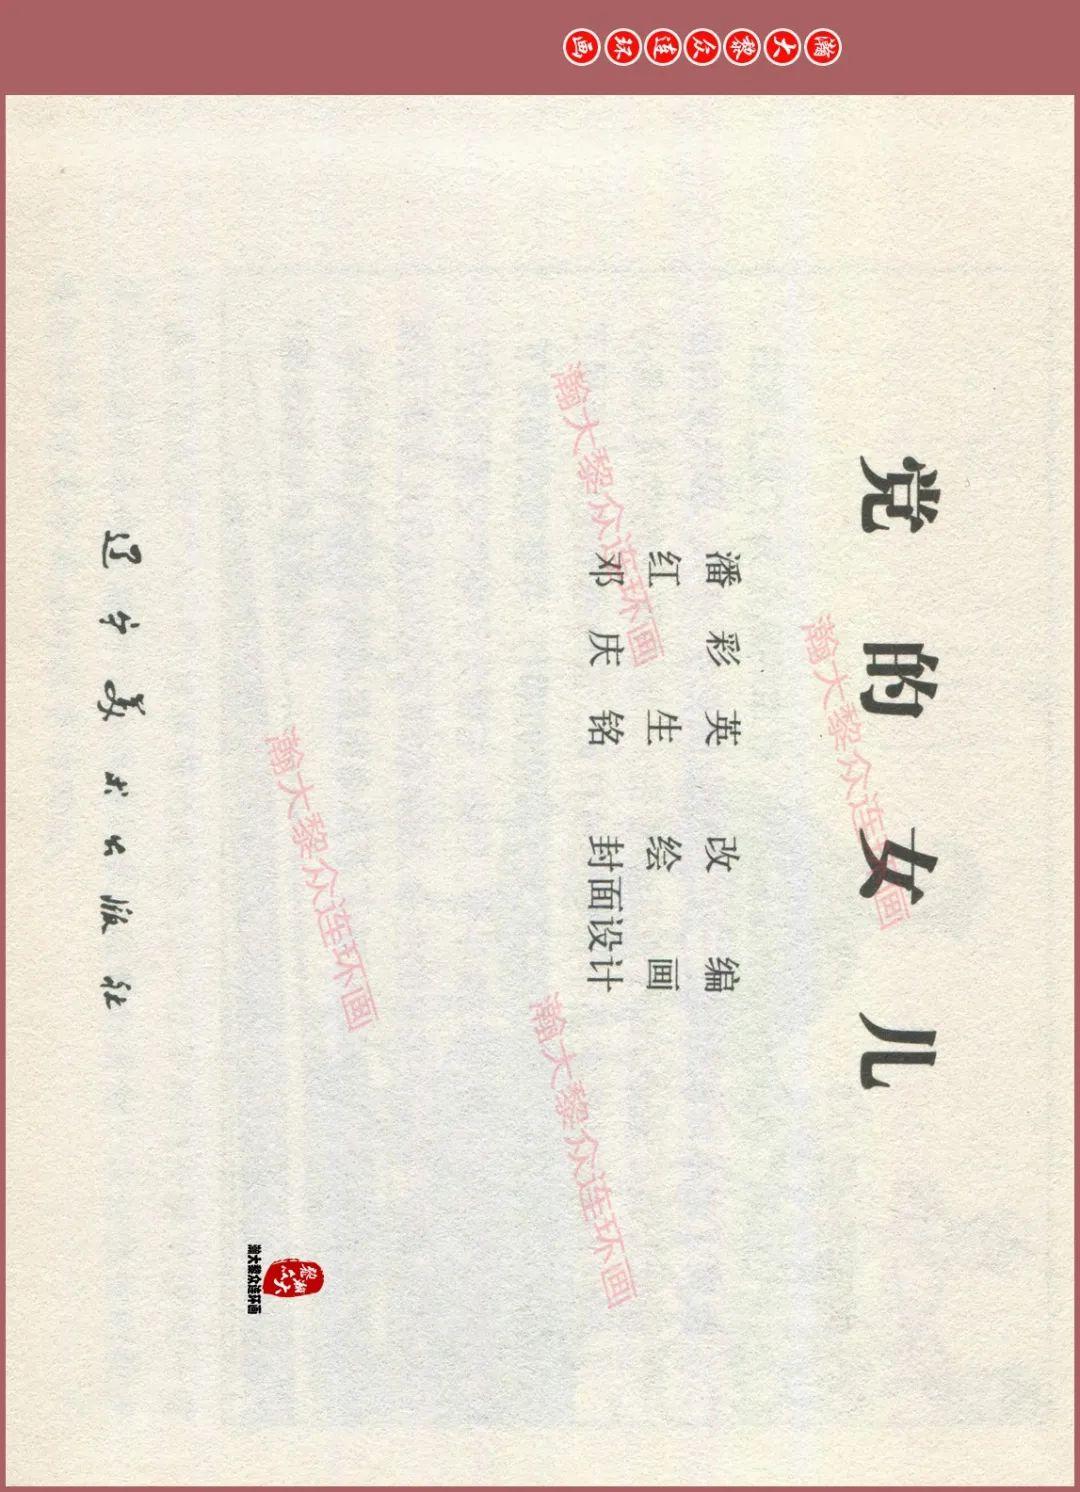 瀚大黎众连环画
党的女儿
潘彩英 改编
红生 绘画
邓庆铭 封面设计
辽宁美术出版社
瀚大黎众连环画
瀚大黎众连环画
瀚大黎众连环画
瀚大黎众连环画
瀚大黎众
瀚大黎众连环画